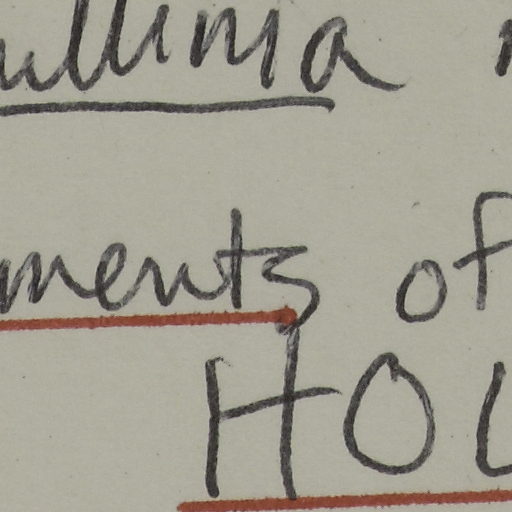 ullinia
ments of
HOU